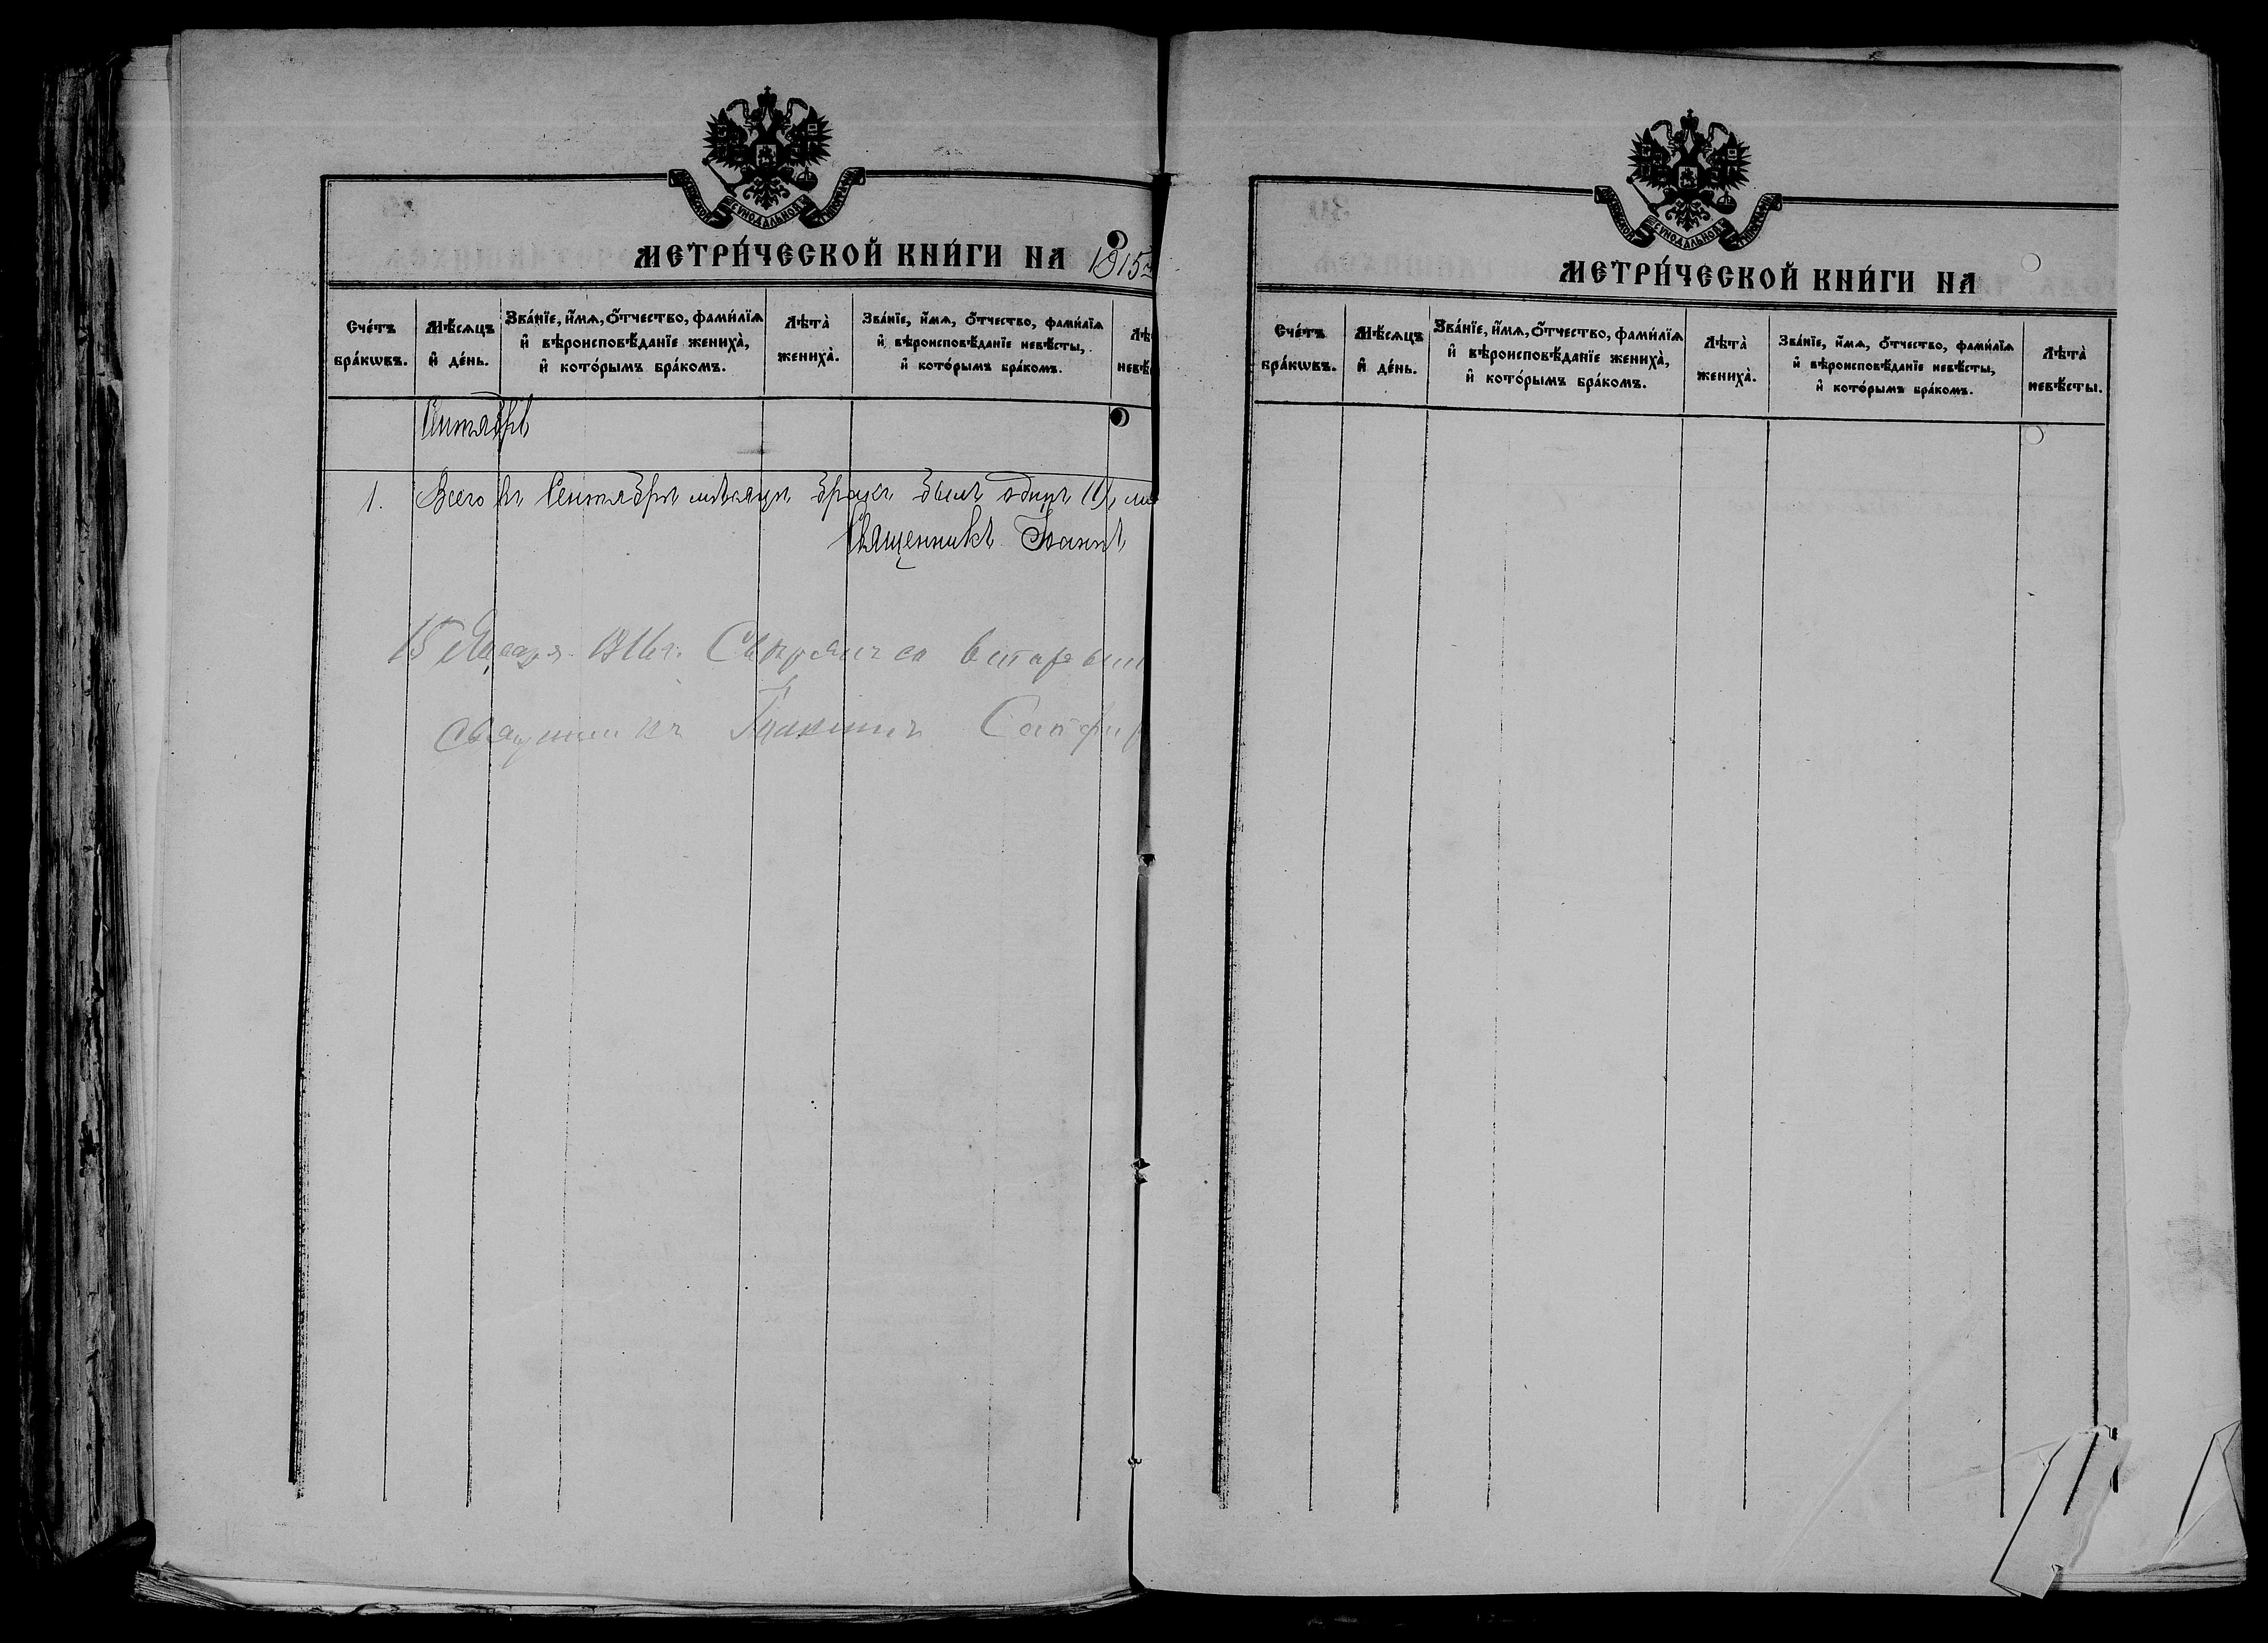 СѴНОДАЛЬНОЙ
МЕТРИ́ЧЕСКОЙ КНИ́ГИ НА 1915
Сче́тъ бра́кѡвъ.
Мѣ́сяцъ и҆ де́нь.
Зва́нїе, и҆́мя, о҆́тчество, фами́лїя и҆ вѣроисповѣ́данїе жениха̀, и҆ кото́рымъ бра́комъ.
Лѣта̀ жениха̀.
Зва́нїе, и҆́мя, о҆́тчество, фами́лїя и҆ вѣроисповѣ́данїе невѣ́сты, и҆ кото́рымъ бра́комъ.
Сентябрь
1. Всего въ Сентябрѣ мѣсяцѣ бракъ былъ одинъ (1),
Священникъ Іоаннъ
15 Января 1916 г.
священникъ
СѴНОДАЛЬНОЙ
МЕТРИ́ЧЕСКОЙ КНИ́ГИ НА
Сче́тъ бра́кѡвъ.
Мѣ́сяцъ и҆ де́нь.
Зва́нїе, и҆́мя, о҆́тчество, фами́лїя и҆ вѣроисповѣ́данїе жениха̀, и҆ кото́рымъ бра́комъ.
Лѣта̀ жениха̀.
Зва́нїе, и҆́мя, о҆́тчество, фами́лїя и҆ вѣроисповѣ́данїе невѣ́сты, и҆ кото́рымъ бра́комъ.
Лѣта̀ невѣ́сты.